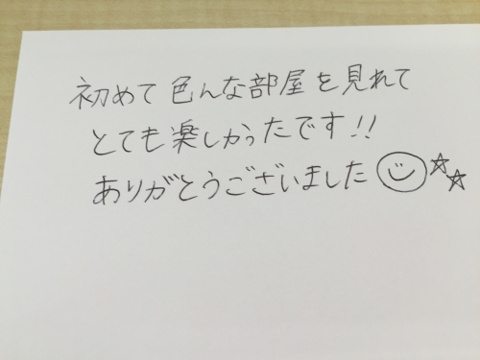 初めて色んな部屋を見れて
とても楽しかったです!!
ありがとうございました